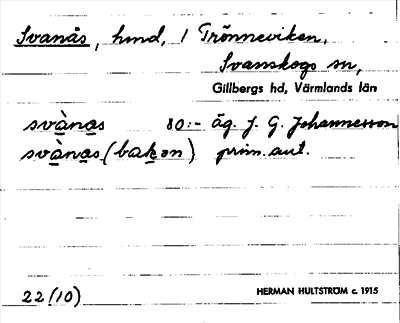 Svanås, hmd, i Trönneviken,
Svanskogs sn,
Gillbergs hd, Värmlands län
svànas 80:- äg. J. G. Johannesson
svànas (bakən) prim. aut.
22 (10) HERMAN HULTSTRÖM c. 1915